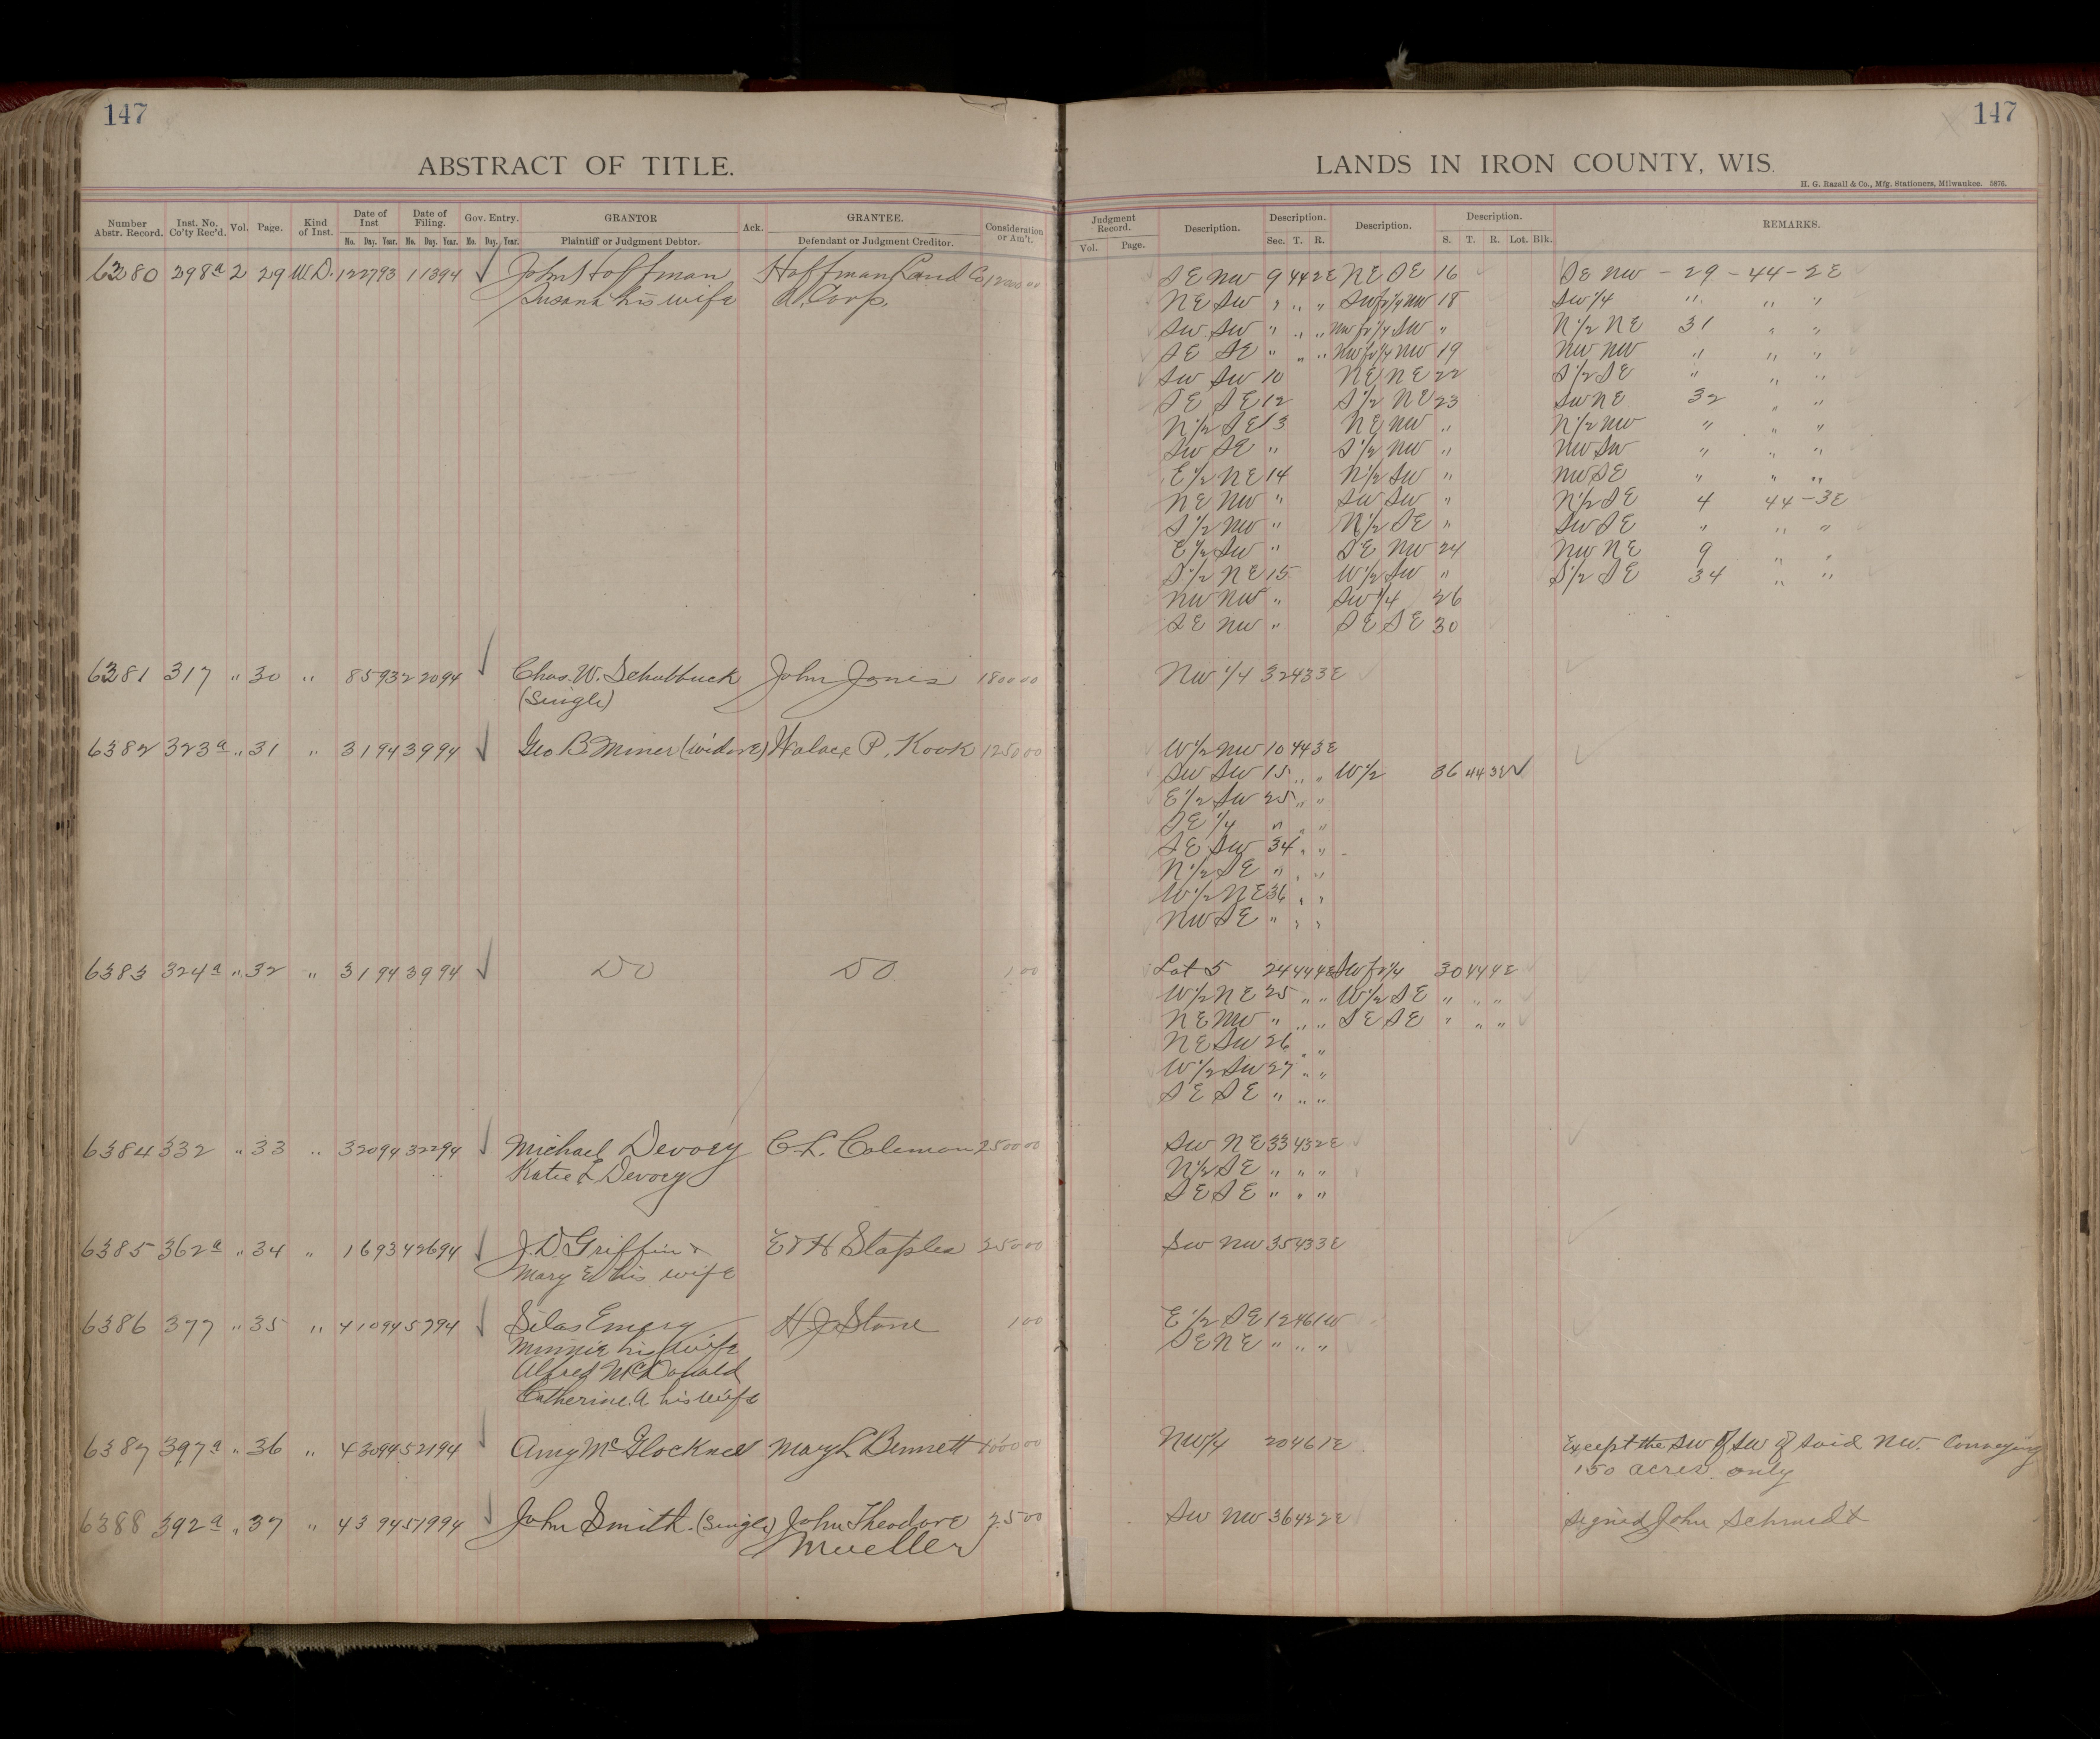 147
147
ABSTRACT OF TITLE.
LANDS IN IRON COUNTY, WIS.
H. G. Razall & Co., Mfg. Stationers, Milwaukee. 5876.
Number Abstr. Record. Inst. No. Co'ty Rec'd. Vol. Page. Kind of Inst. Date of Inst Date of Filing. Gov. Entry. GRANTOR Ack. GRANTEE. Consideration or Am't. Judgment Record. Description. Description. Description. Description. REMARKS.
Mo. Day. Year. Mo. Day. Year. Mo. Day. Year. Plaintiff or Judgment Debtor. Defendant or Judgment Creditor. Vol. Page. Sec. T. R. S. T. R. Lot. Blk.
6280 298a 2 29 W.D. 12 27 93 1 13 94 John Hoffman Hoffman Land Co SE NW 9 44 2E NE SE 16 SE NW - 29 - 44 - 2E
Susana his wife A. Corp. NE SW " " " SW fr 1/4 NW 18 SW 1/4 " " "
SW SW " " " NW fr 1/4 SW " N 1/2 NE 31 " "
SE SE " " " NW fr 1/4 NW 19 NW NW " " "
SW SW 10 NE NE 22 S 1/2 SE " " "
SE SE 12 S 1/2 NE 23 SW NE 32 " "
N 1/2 SE 13 NE NW " N 1/2 NW " " "
SW SE " S 1/2 NW " NW SW " " "
E 1/2 NE 14 N 1/2 SW " NW SE " " "
NE NW " SW SW " N 1/2 SE 4 44 - 3E
S 1/2 NW " N 1/2 SE " SW SE " " "
E 1/2 SW " SE NW 24 NW NE 9 " "
S 1/2 NE 15 W 1/2 SW " S 1/2 SE 34 " "
NW NW " SW 1/4 26
SE NW " SE SE 30
6381 317 " 30 " 8 5 93 2 20 94 Chas. W. Schubbuck John Jones 1800 00 NW 1/4 32 43 3E
(Single)
6382 323a " 31 " 3 1 94 3 9 94 Geo B Miner (widore) Walace P. Kook 1250 00 W 1/2 NW 10 44 3E
SW SW 15 " " W 1/2 36 44 3E
E 1/2 SW 25 " "
SE 1/4 " " "
SE SW 34 " "
N 1/2 SE " " "
W 1/2 NE 36 " "
NW SE " " "
6383 324a " 32 " 3 1 94 3 9 94 DO DO 1 00 Lot 5 24 44 4E SW fr 1/4 30 44 4E
W 1/2 NE 25 " " W 1/2 SE " " "
NE NW " " " SE SE " " "
NE SW 26 " "
W 1/2 SW 27 " "
SE SE " " "
6384 332 " 33 " 3 20 94 3 22 94 Michael Devory C. L. Coleman 2500 00 SW NE 33 43 2E
Katie L Devory N 1/2 SE " " "
SE SE " " "
6385 362a " 34 " 1 6 93 4 26 94 J. D. Griffin & E & H Staples 250 00 SW NW 35 43 3E
Mary E his wife
6386 377 " 35 " 4 10 94 5 7 94 Silas Emery H. J. Stone 1 00 E 1/2 SE 12 46 1W
Minnie his wife SE NE " " "
Alfred McDonald
Catherine. A his wife
6387 397a " 36 " 4 30 94 5 21 94 Amy McGlocknel Mary L Bennett 1000 00 NW 1/4 20 46 1E Except the SW of SW of said NW. Conveying
150 acres only
6388 392a " 37 " 4 3 94 5 19 94 John Smith. (Single) John Theodore 25 00 SW NW 36 42 2E Signed John Schmidt
Mueller